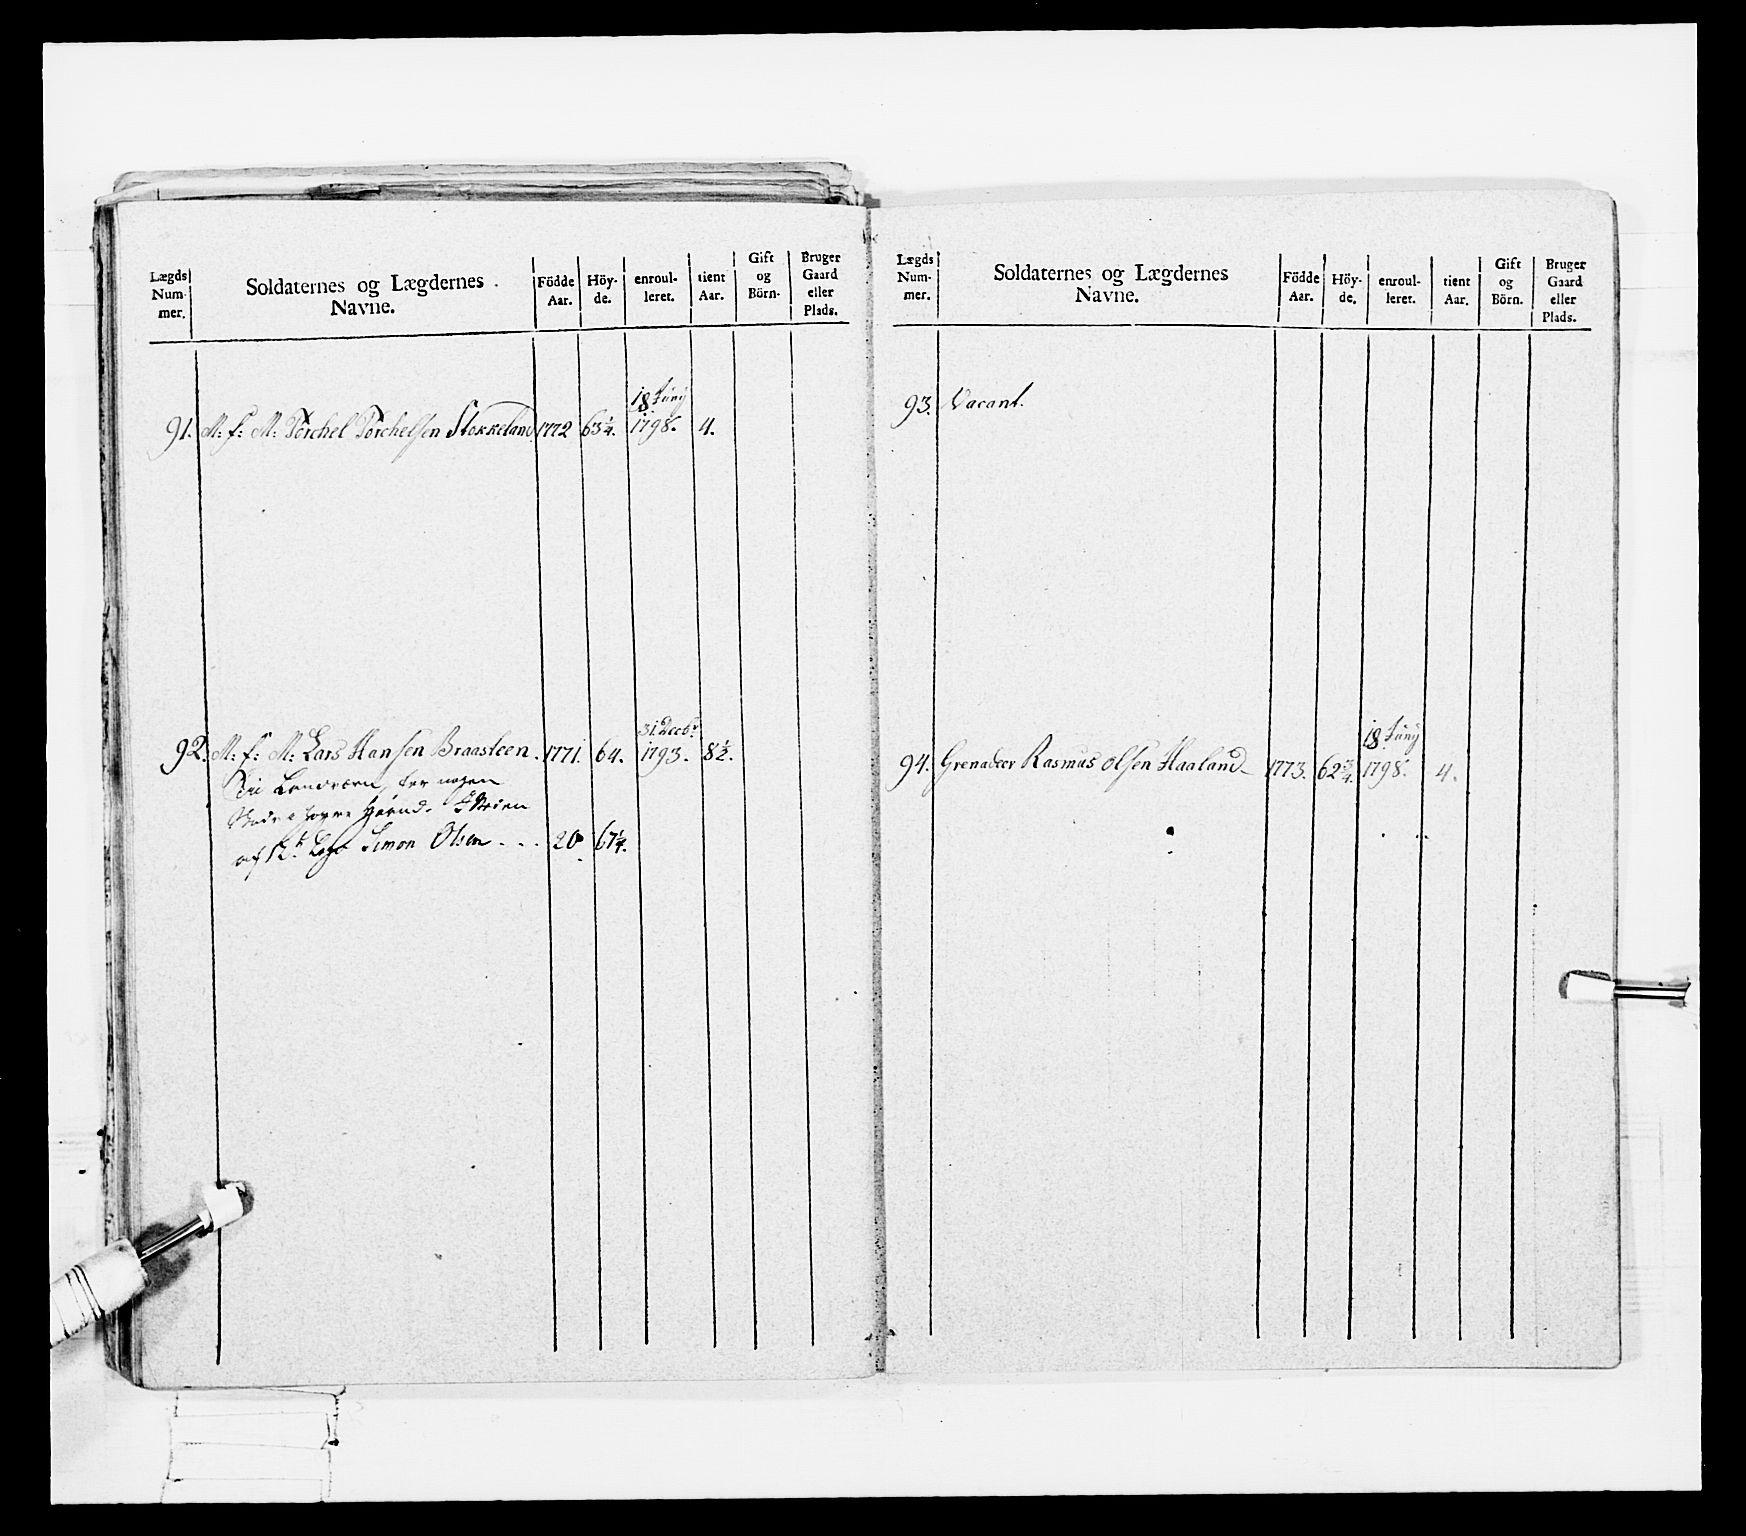 Lægds Num- mer.
Soldaternes og Lægdernes Navne.
Födde Aar.
Höy- de.
enroul- leret.
tient Aar.
Gift og Börn.
Bruger Gaard eller Plads.
18 Juny
91. M: f: M: Torchel Torchelsen Stokkeland 1772 63¼. 1798. 4.
31. Decbr
92. M: f: M: Lars Hansen Braasteen. 1771. 64. 1793. 8½.
Til Landværn, har nogen
af Simon Olsen - . . 20 67¼.
Lægds Num- mer.
Soldaternes og Lægdernes Navne.
Födde Aar.
Höy- de.
enroul- leret.
tient Aar.
Gift og Börn.
Bruger Gaard eller Plads.
93. Vacant.
18. Juny
94. Grenadeer Rasmus Olsen Haaland 1773. 62¾. 1798. 4.